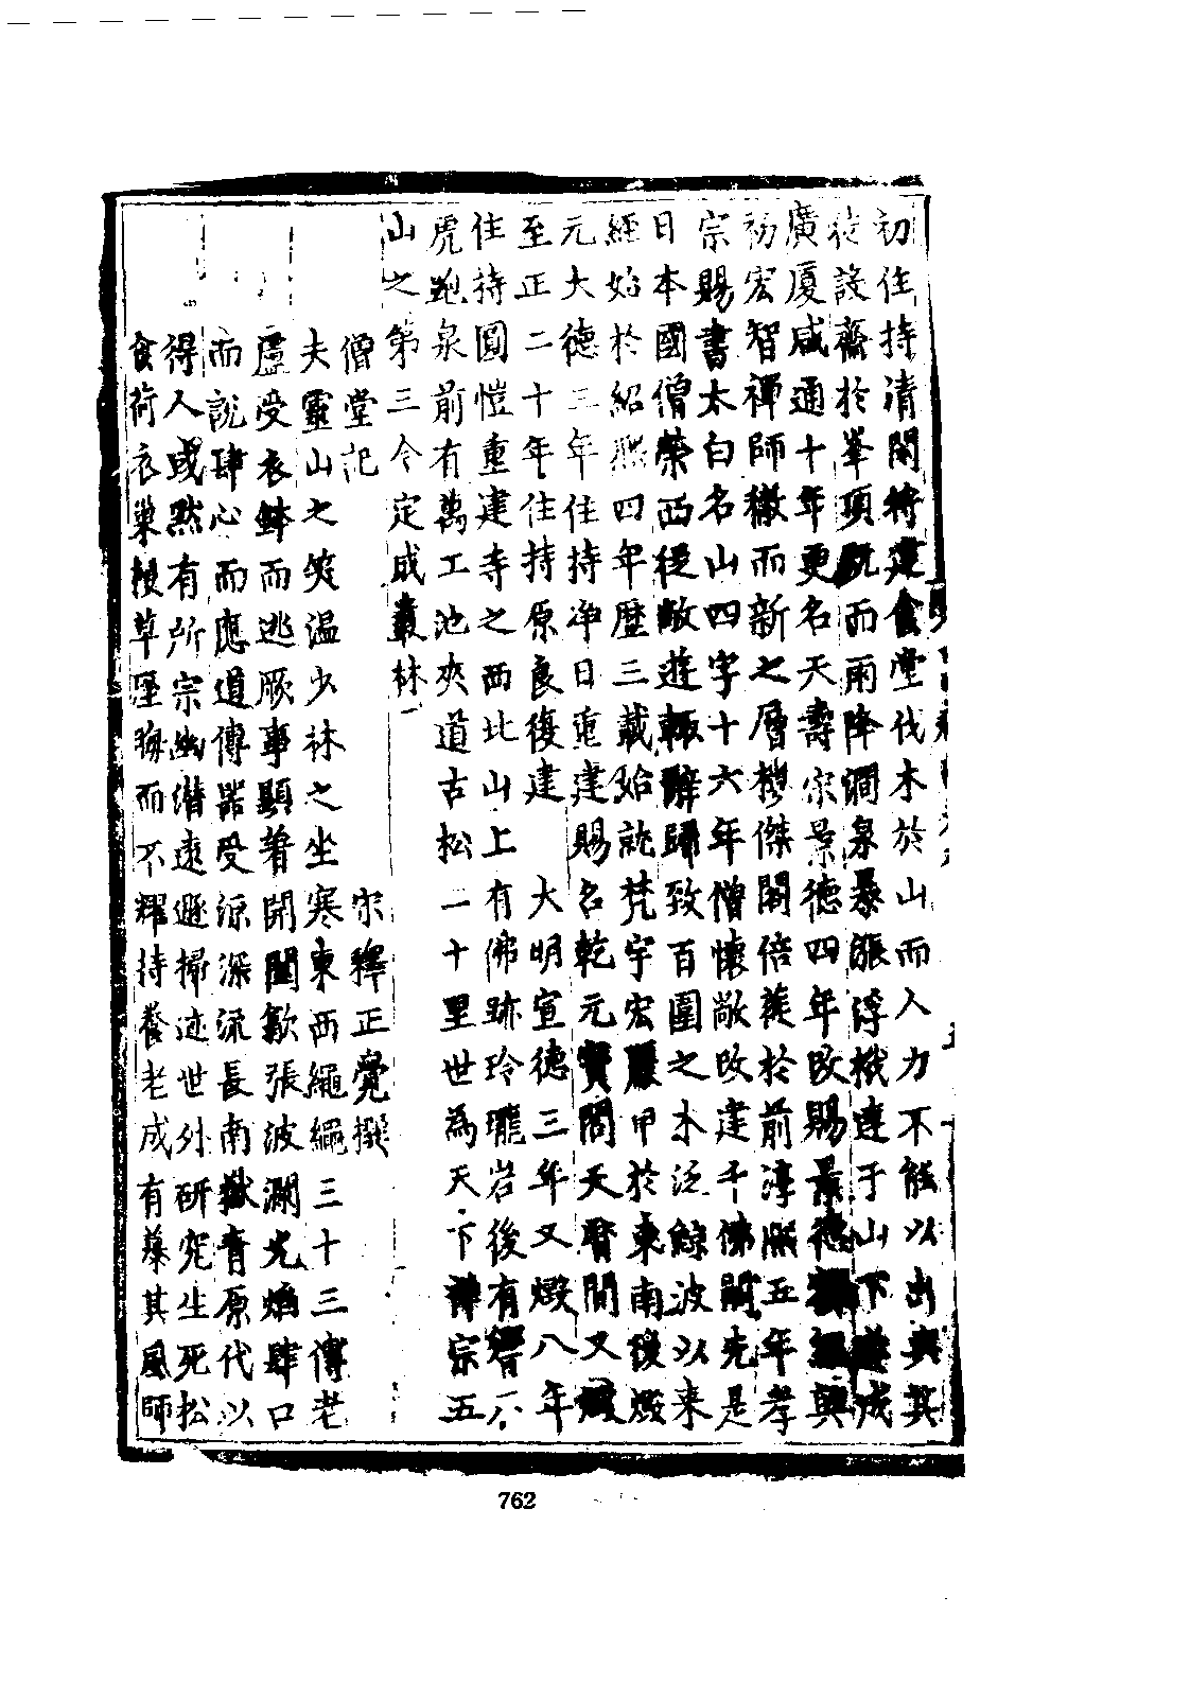 初住持清閑將建食堂伐木於山而人力不能以出與其
徒設齋於峯項既而雨降澗泉暴漲浮栰達于山下遂成
廣厦咸通十年更名天壽宗景德四年改賜景德禪寺紹興
初宏智禪師撤而新之層樓傑閣倍蓰於前淳熙五年孝
宗賜書太白名山四字十六年僧懷敞改建千佛閣先是
日本國僧榮西從敞遊輒辭歸致百圍之木泛鯨波以来
經始於紹熙四年歷三載始就梵宇宏麗甲於東南後燬
元大德三年住持淨日重建賜名乾元寶閣天曆間又燬
至正二十年住持原良復建 大明宣德三年又燬八年
住持圓愷重建寺之西北山上有佛跡玲瓏岩後有響石
虎跑泉前有萬工池夾道古松二十里世為天下禪宗五
山之第三今定成叢林
僧堂記
宋釋正覺撰
夫靈山之笑温少林之坐寒東西繩繩三十三傳老
盧受衣鉢而逃厥事顯著開闔歙張波瀾光焰肆口
而說肆心而應道傳器受源深流長南嶽青原代以
得人或黙有所宗幽潛遠遯掃迹世外研究生死松
食荷衣巢椶草堙晦而不耀持養老成有慕其風師
762